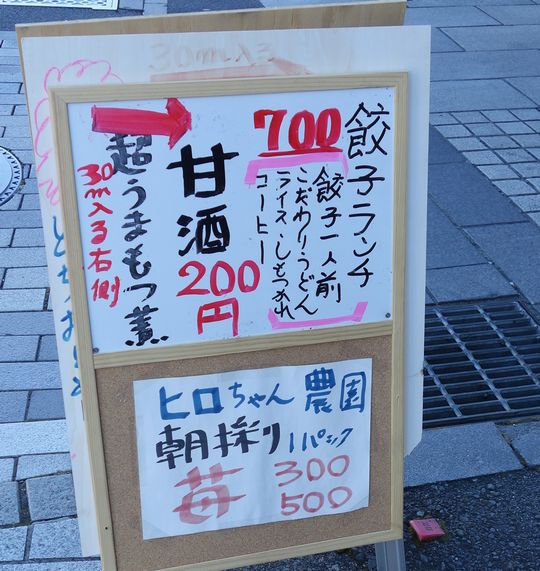 30m入る
餃子ランチ
700
餃子一人前
こだわりうどん
ライス・しもつかれ
コーヒー
甘酒
200円
超うまもつ煮
30m入る右側
ヒロちゃん農園
朝採り1パック
苺 300
500